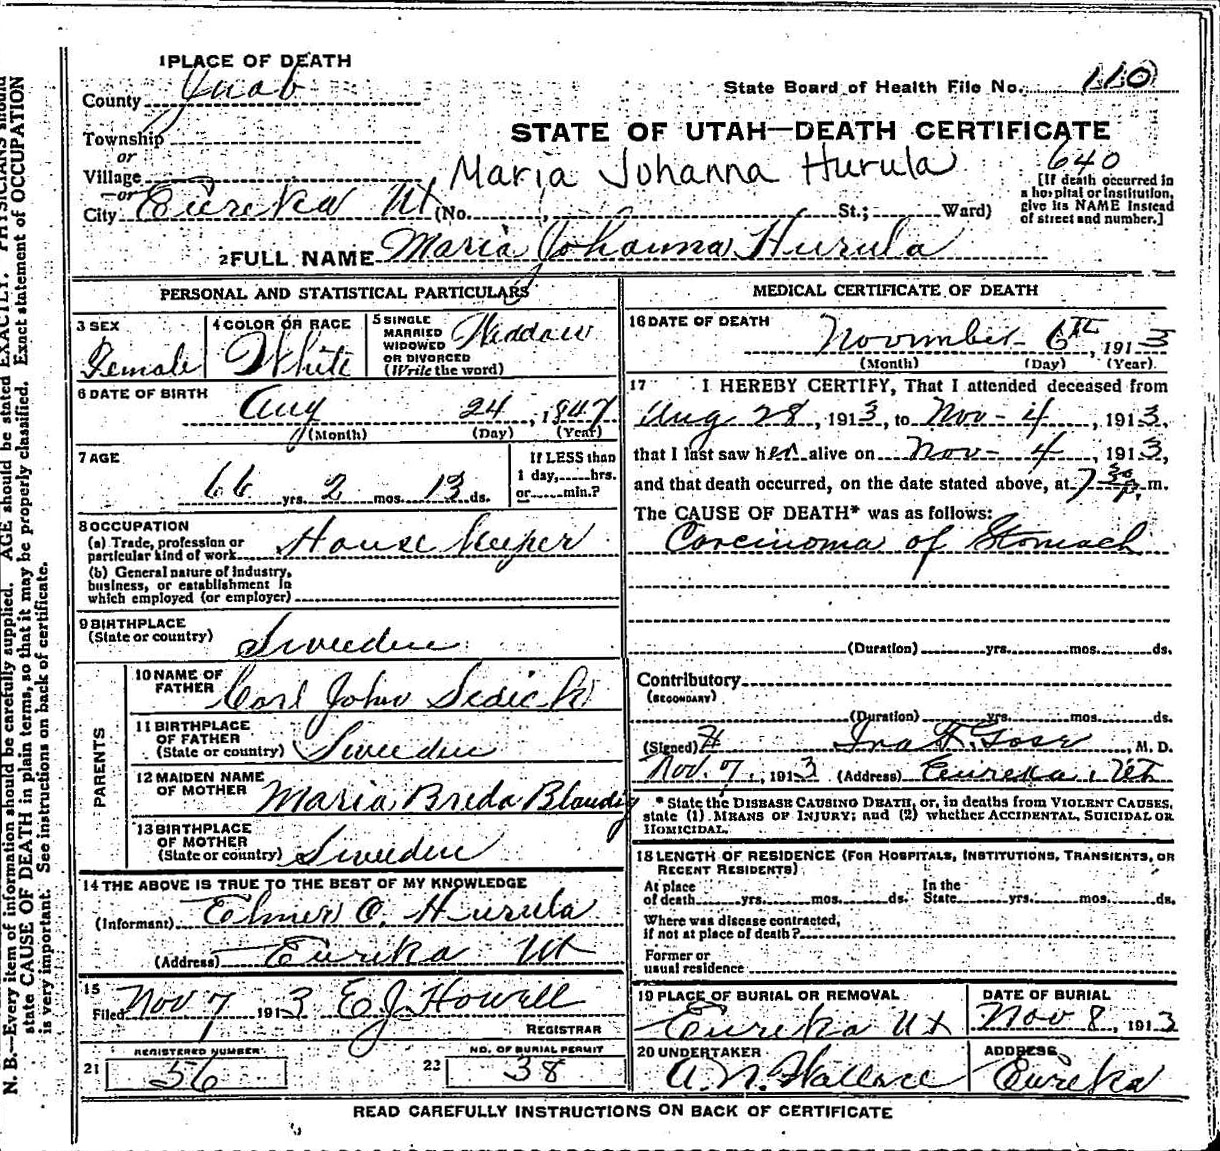 1 PLACE OF DEATH
County Juab
State Board of Health File No. 110
Township
or
STATE OF UTAH—DEATH CERTIFICATE
Village
Maria Johanna Hurula
640
or
City Eureka Ut (No. St.; Ward)
[If death occurred in a hospital or institution, give its NAME instead of street and number.]
2 FULL NAME Maria Johanna Hurula
PERSONAL AND STATISTICAL PARTICULARS
3 SEX
Female
4 COLOR OR RACE
White
5 SINGLE
MARRIED
WIDOWED
OR DIVORCED
(Write the word)
Widdow
6 DATE OF BIRTH
Aug 24, 1847
(Month) (Day) (Year)
7 AGE
66 yrs. 2 mos. 13 ds.
If LESS than
1 day, hrs.
or min.?
8 OCCUPATION
(a) Trade, profession or
particular kind of work House keeper
(b) General nature of industry,
business, or establishment in
which employed (or employer)
9 BIRTHPLACE
(State or country) Sweeden
PARENTS
10 NAME OF
FATHER Carl John Sedick
11 BIRTHPLACE
OF FATHER
(State or country) Sweeden
12 MAIDEN NAME
OF MOTHER Maria Breda Blandig
13 BIRTHPLACE
OF MOTHER
(State or country) Sweeden
14 THE ABOVE IS TRUE TO THE BEST OF MY KNOWLEDGE
(Informant) Elmer O. Hurula
(Address) Eureka Ut
15
Filed Nov 7 1913 E J Howell
REGISTRAR
REGISTERED NUMBER
21 56
NO. OF BURIAL PERMIT
22 38
MEDICAL CERTIFICATE OF DEATH
16 DATE OF DEATH
Novmber 6th, 1913
(Month) (Day) (Year)
17 I HEREBY CERTIFY, That I attended deceased from
Aug 28, 1913, to Nov - 4, 1913,
that I last saw her alive on Nov - 4, 1913,
and that death occurred, on the date stated above, at 7 30 p. m.
The CAUSE OF DEATH* was as follows:
Carcinoma of Stomach
(Duration) yrs. mos. ds.
Contributory
(SECONDARY)
(Duration) yrs. mos. ds.
(Signed) Ira F. Gose, M. D.
Nov. 7, 1913 (Address) Eureka, Ut
* State the DISEASE CAUSING DEATH, or, in deaths from VIOLENT CAUSES,
state (1) MEANS OF INJURY; and (2) whether ACCIDENTAL, SUICIDAL OR
HOMICIDAL.
18 LENGTH OF RESIDENCE (FOR HOSPITALS, INSTITUTIONS, TRANSIENTS, OR
RECENT RESIDENTS)
At place
of death yrs. mos. ds.
In the
State yrs. mos. ds.
Where was disease contracted,
if not at place of death?
Former or
usual residence
19 PLACE OF BURIAL OR REMOVAL
Eureka Ut
DATE OF BURIAL
Nov 8, 1913
20 UNDERTAKER
A. N. Wallace
ADDRESS
Eureka
READ CAREFULLY INSTRUCTIONS ON BACK OF CERTIFICATE
N. B.—Every item of information should be carefully supplied. AGE should be stated EXACTLY. PHYSICIANS should
state CAUSE OF DEATH in plain terms, so that it may be properly classified. Exact statement of OCCUPATION
is very important. See instructions on back of certificate.